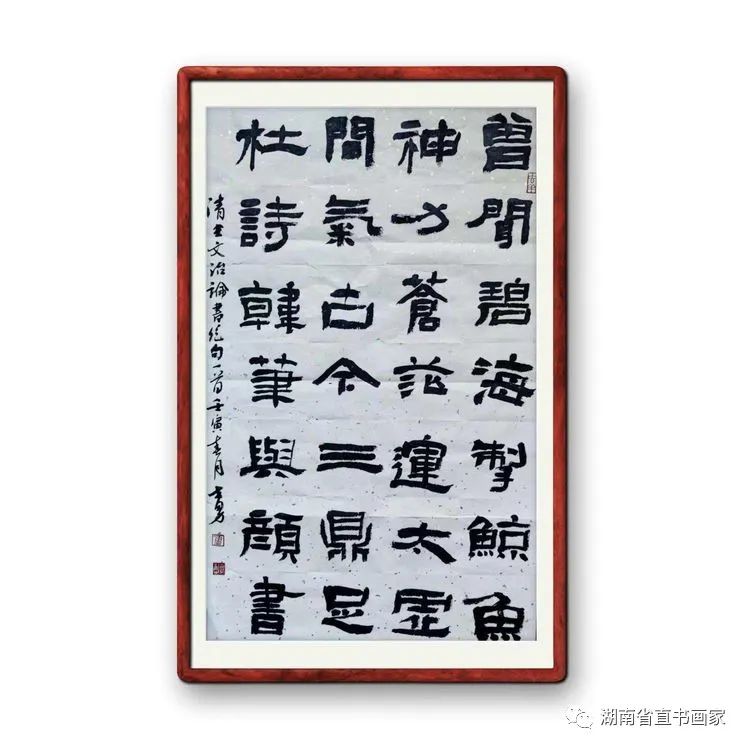 曾聞碧海掣鯨魚
神力蒼茫運太虛
間氣古今三鼎足
杜詩韓筆與顏書
清王文治論書絕句一首壬寅春月
湖南省直书画家